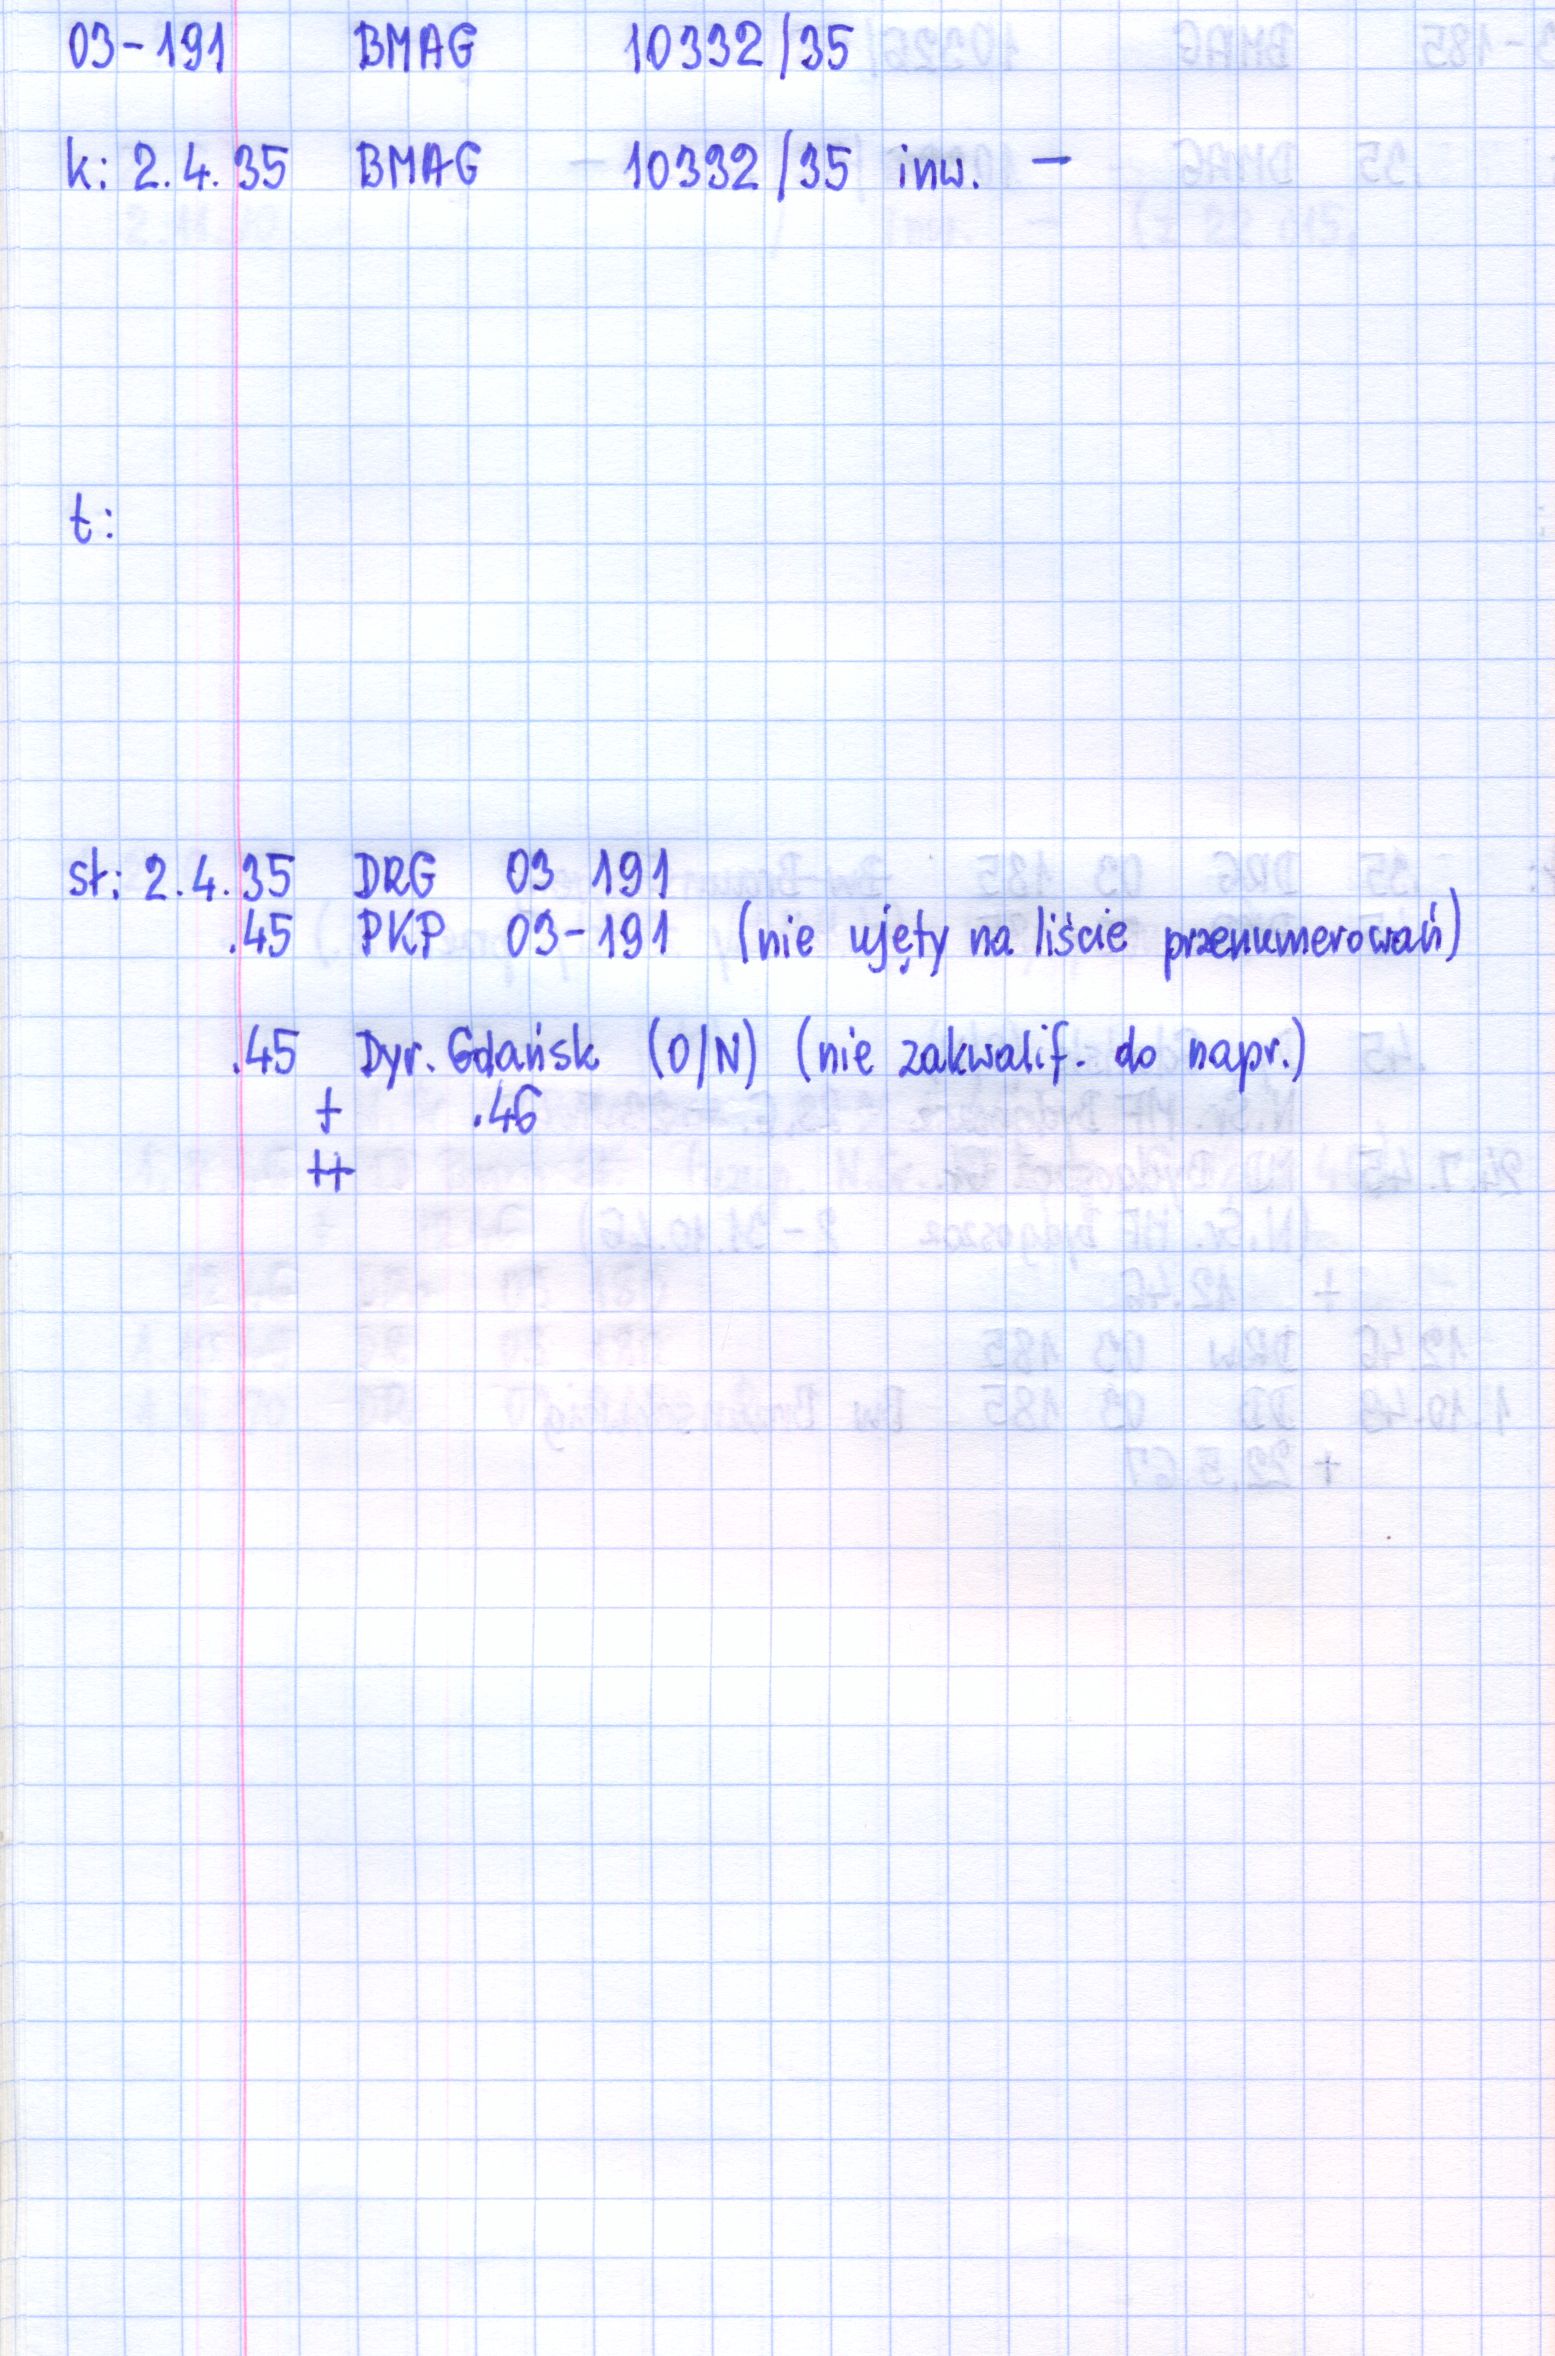 03-191 BMAG 10332/35
k: 2.4.35 BMAG - 10332/35 inw. -
t:
st: 2.4.35 DRG 03 191
.45 PKP 03-191 (nie ujęty na liście przenumerowań)
.45 Dyr. Gdańsk (O/N) (nie zakwalif. do napr.)
+ .46
++